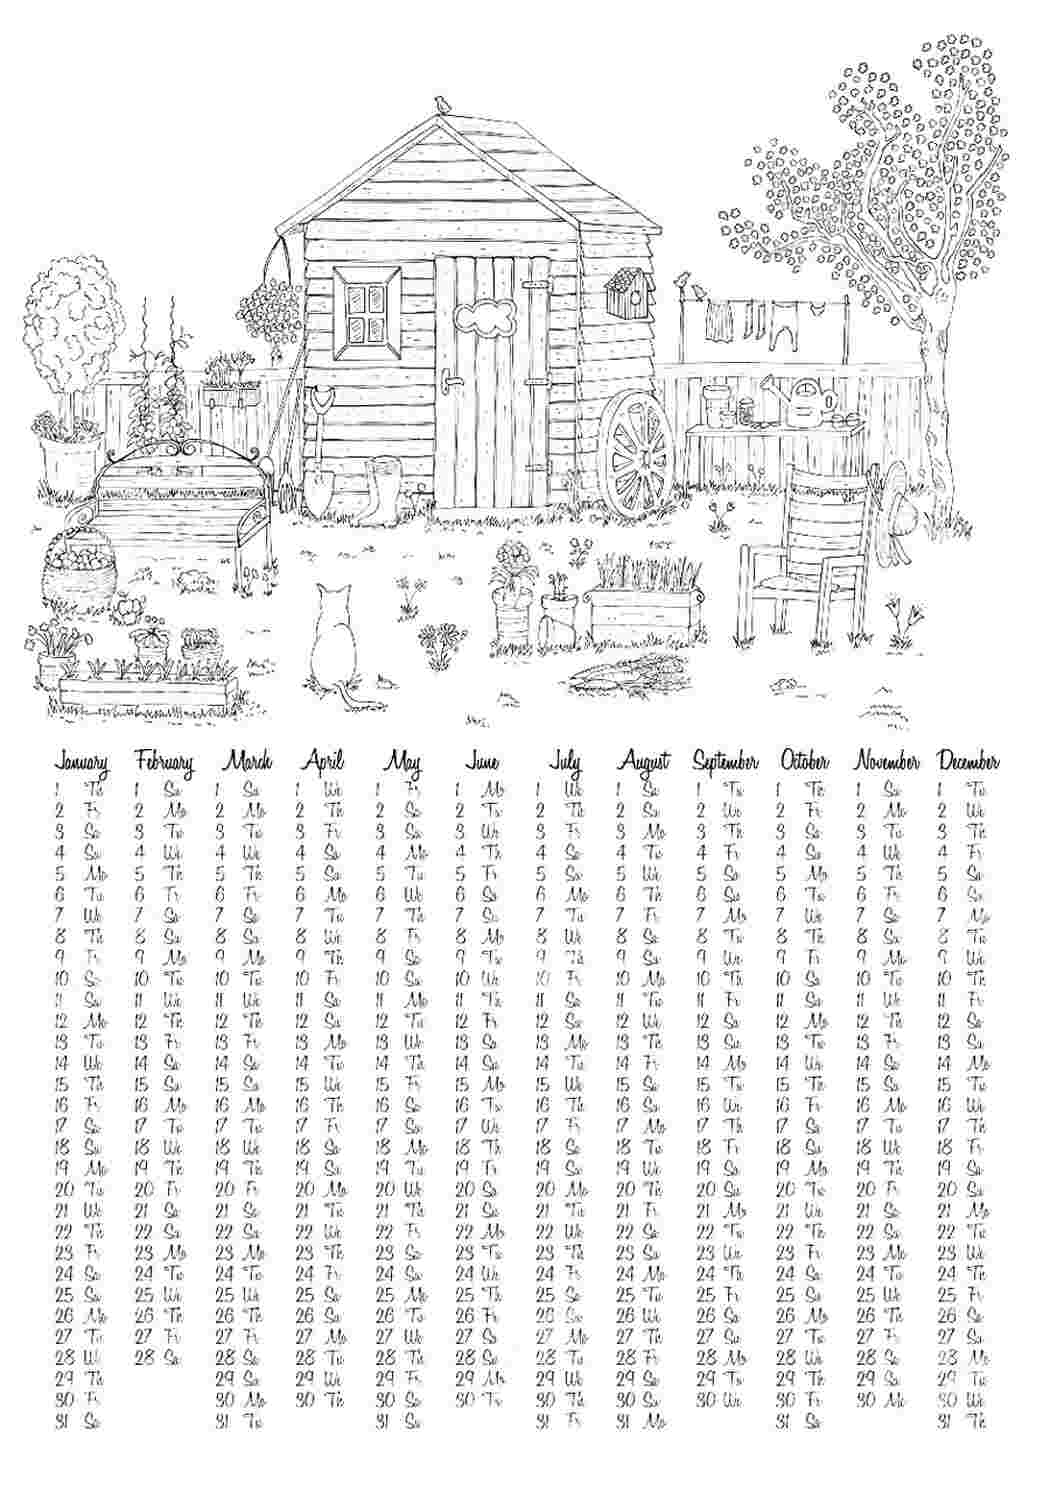 January February March April May June July August September October November December
1 Th 1 Su 1 Su 1 We 1 Fr 1 Mo 1 We 1 Sa 1 Tu 1 Th 1 Su 1 Tu
2 Fr 2 Mo 2 Mo 2 Th 2 Sa 2 Tu 2 Th 2 Su 2 We 2 Fr 2 Mo 2 We
3 Sa 3 Tu 3 Tu 3 Fr 3 Su 3 We 3 Fr 3 Mo 3 Th 3 Sa 3 Tu 3 Th
4 Su 4 We 4 We 4 Sa 4 Mo 4 Th 4 Sa 4 Tu 4 Fr 4 Su 4 We 4 Fr
5 Mo 5 Th 5 Th 5 Su 5 Tu 5 Fr 5 Su 5 We 5 Sa 5 Mo 5 Th 5 Sa
6 Tu 6 Fr 6 Fr 6 Mo 6 We 6 Sa 6 Mo 6 Th 6 Su 6 Tu 6 Fr 6 Su
7 We 7 Sa 7 Sa 7 Tu 7 Th 7 Su 7 Tu 7 Fr 7 Mo 7 We 7 Sa 7 Mo
8 Th 8 Su 8 Su 8 We 8 Fr 8 Mo 8 We 8 Sa 8 Tu 8 Th 8 Su 8 Tu
9 Fr 9 Mo 9 Mo 9 Th 9 Sa 9 Tu 9 Th 9 Su 9 We 9 Fr 9 Mo 9 We
10 Sa 10 Tu 10 Tu 10 Fr 10 Su 10 We 10 Fr 10 Mo 10 Th 10 Sa 10 Tu 10 Th
11 Su 11 We 11 We 11 Sa 11 Mo 11 Th 11 Sa 11 Tu 11 Fr 11 Su 11 We 11 Fr
12 Mo 12 Th 12 Th 12 Su 12 Tu 12 Fr 12 Su 12 We 12 Sa 12 Mo 12 Th 12 Sa
13 Tu 13 Fr 13 Fr 13 Mo 13 We 13 Sa 13 Mo 13 Th 13 Su 13 Tu 13 Fr 13 Su
14 We 14 Sa 14 Sa 14 Tu 14 Th 14 Su 14 Tu 14 Fr 14 Mo 14 We 14 Sa 14 Mo
15 Th 15 Su 15 Su 15 We 15 Fr 15 Mo 15 We 15 Sa 15 Tu 15 Th 15 Su 15 Tu
16 Fr 16 Mo 16 Mo 16 Th 16 Sa 16 Tu 16 Th 16 Su 16 We 16 Fr 16 Mo 16 We
17 Sa 17 Tu 17 Tu 17 Fr 17 Su 17 We 17 Fr 17 Mo 17 Th 17 Sa 17 Tu 17 Th
18 Su 18 We 18 We 18 Sa 18 Mo 18 Th 18 Sa 18 Tu 18 Fr 18 Su 18 We 18 Fr
19 Mo 19 Th 19 Th 19 Su 19 Tu 19 Fr 19 Su 19 We 19 Sa 19 Mo 19 Th 19 Sa
20 Tu 20 Fr 20 Fr 20 Mo 20 We 20 Sa 20 Mo 20 Th 20 Su 20 Tu 20 Fr 20 Su
21 We 21 Sa 21 Sa 21 Tu 21 Th 21 Su 21 Tu 21 Fr 21 Mo 21 We 21 Sa 21 Mo
22 Th 22 Su 22 Su 22 We 22 Fr 22 Mo 22 We 22 Sa 22 Tu 22 Th 22 Su 22 Tu
23 Fr 23 Mo 23 Mo 23 Th 23 Sa 23 Tu 23 Th 23 Su 23 We 23 Fr 23 Mo 23 We
24 Sa 24 Tu 24 Tu 24 Fr 24 Su 24 We 24 Fr 24 Mo 24 Th 24 Sa 24 Tu 24 Th
25 Su 25 We 25 We 25 Sa 25 Mo 25 Th 25 Sa 25 Tu 25 Fr 25 Su 25 We 25 Fr
26 Mo 26 Th 26 Th 26 Su 26 Tu 26 Fr 26 Su 26 We 26 Sa 26 Mo 26 Th 26 Sa
27 Tu 27 Fr 27 Fr 27 Mo 27 We 27 Sa 27 Mo 27 Th 27 Su 27 Tu 27 Fr 27 Su
28 We 28 Sa 28 Sa 28 Tu 28 Th 28 Su 28 Tu 28 Fr 28 Mo 28 We 28 Sa 28 Mo
29 Th 29 Su 29 We 29 Fr 29 Mo 29 We 29 Sa 29 Tu 29 Th 29 Su 29 Tu
30 Fr 30 Mo 30 Th 30 Sa 30 Tu 30 Th 30 Su 30 We 30 Fr 30 Mo 30 We
31 Sa 31 Tu 31 Su 31 Fr 31 Mo 31 Sa 31 Th